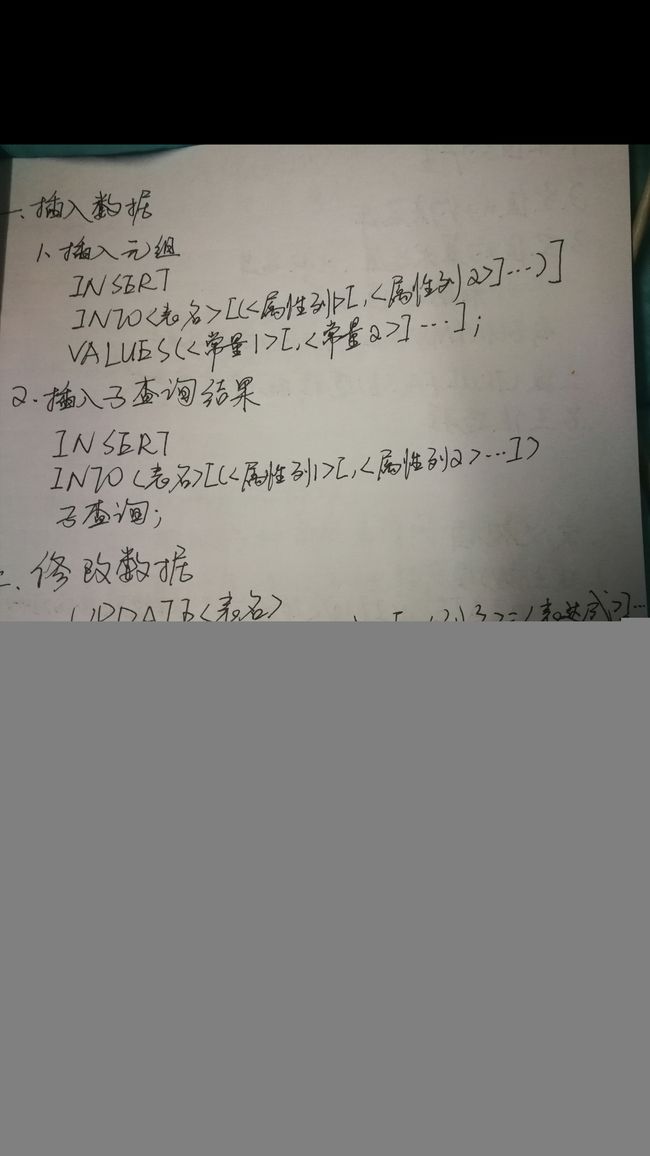 一、插入数据
1、插入元组
INSERT
INTO<表名>[(<属性列1>[,<属性列2>]…)]
VALUES(<常量1>[,<常量2>]…];
2.插入子查询结果
INSERT
INTO<表名>[(<属性列1>[,<属性列2>…])
子查询;
二、修改数据
UPDATE<表名>
=<表达式>]…